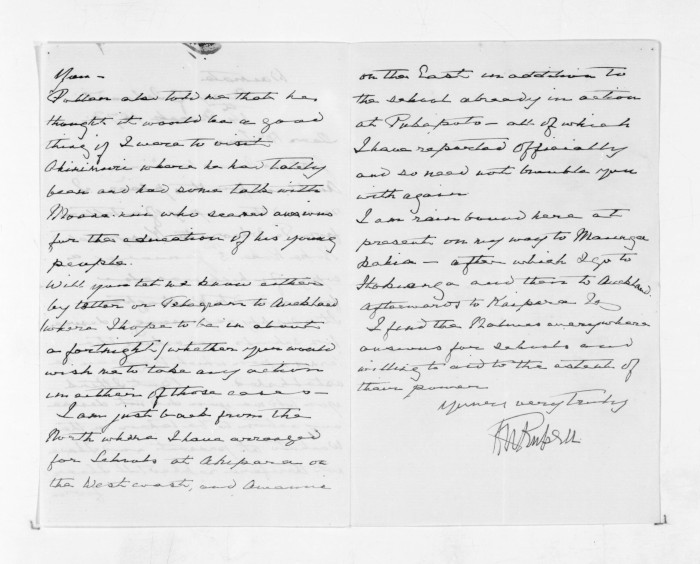 You —
Pollen also told me that he
thought it would be a good
thing if I were to visit
where he had lately
been and had some talk with
who seemed anxious
for the education of his young
people.
Will you let me know either
by letter or Telegram to Auckland
(where I hope to be in about
a fortnight) whether you would
wish me to take any action
in either of those cases —
I am just back from the
North where I have arranged
for Schools at Ahipara on
the West coast, and Awanui
on the East in addition to
the school already in action
at Pukepoto — all of which
I have reported officially
and so need not trouble you
with again
I am rainbound here at
present on my way to Maunga
— after which I go to
Hokianga and then to Auckland
afterwards to Kaipara &c
I find the Natives everywhere
anxious for schools and
willing to aid to the extent of
their power
Yours very truly